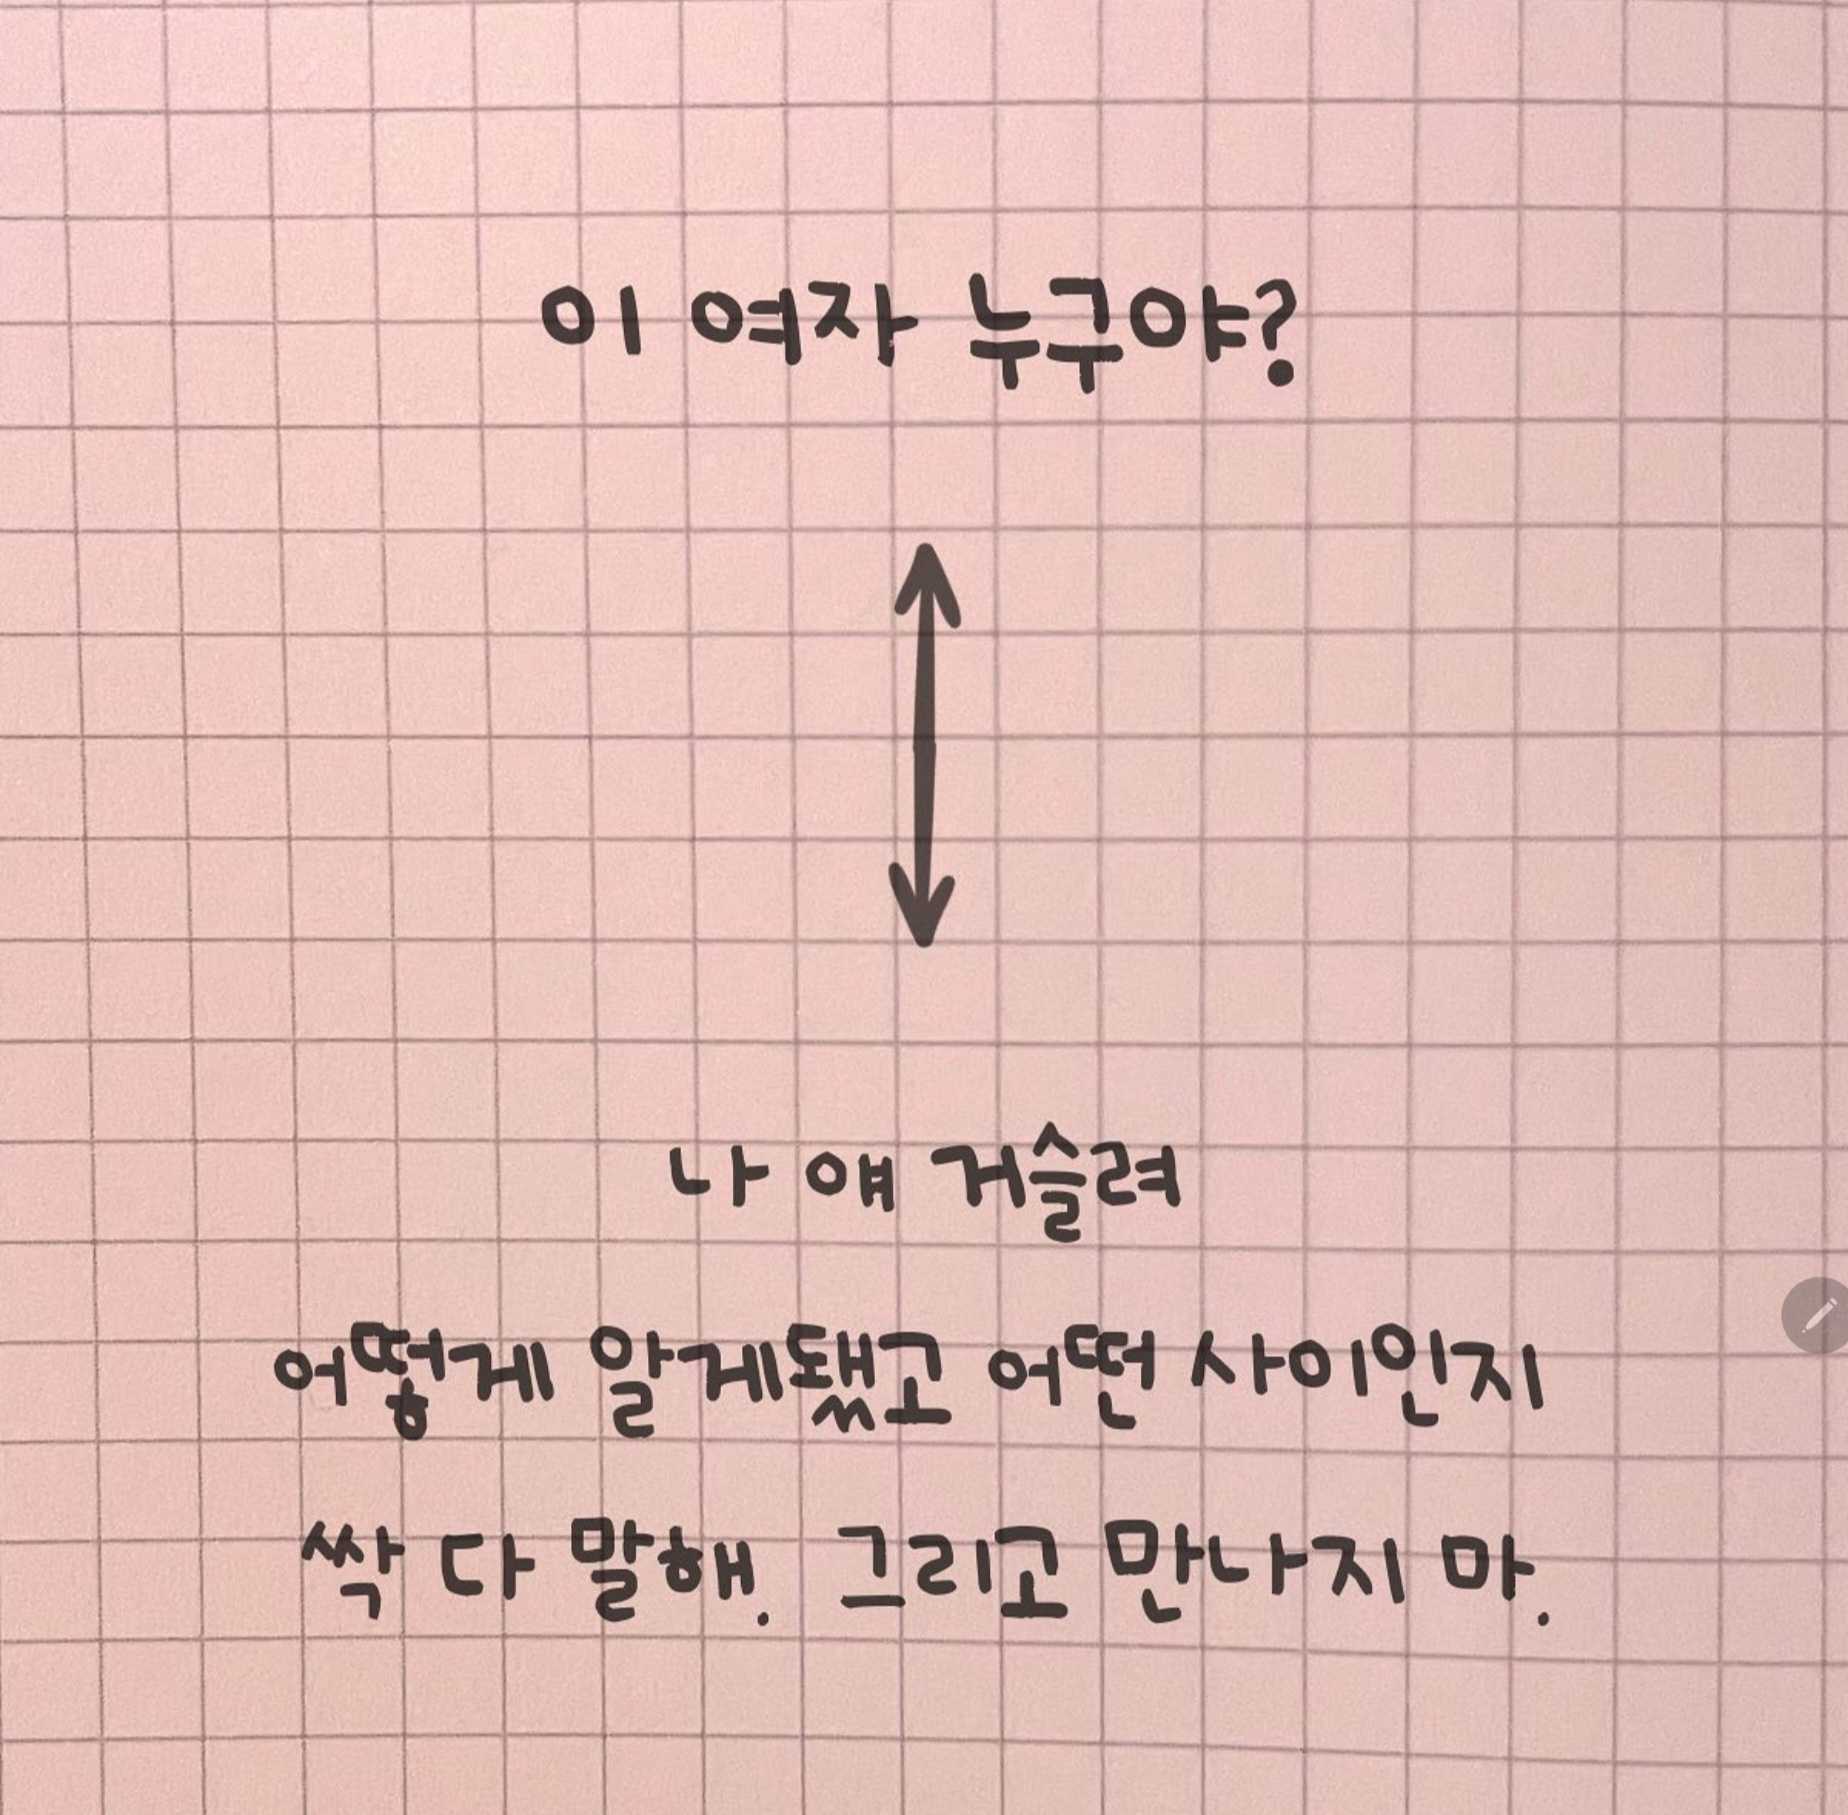 이 여자 누구야?
나 얘 거슬려
어떻게 알게됐고 어떤 사이인지
싹 다 말해. 그리고 만나지 마.